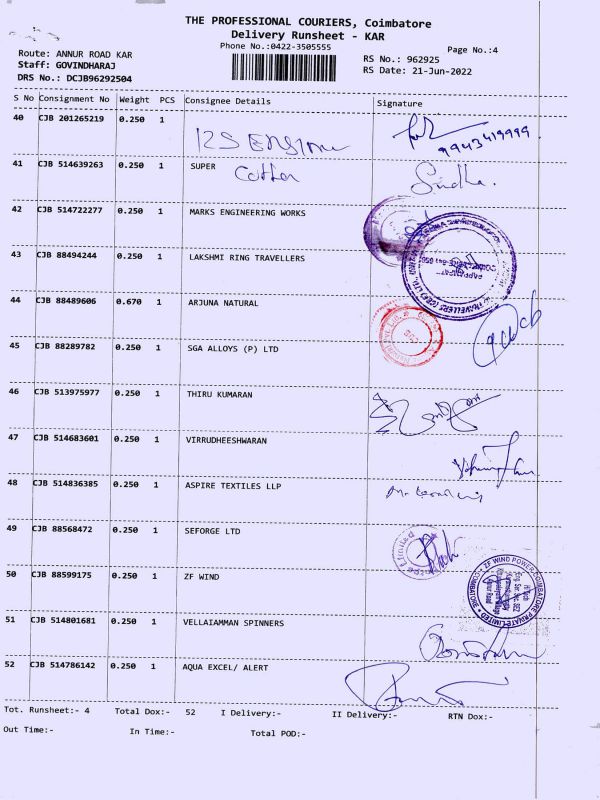 THE PROFESSIONAL COURIERS, Coimbatore
Delivery Runsheet - KAR
Phone No.:0422-3505555
Page No.:4
Route: ANNUR ROAD KAR
RS No.: 962925
Staff: GOVINDHARAJ
RS Date: 21-Jun-2022
DRS No.: DCJB96292504
S No Consignment No Weight PCS Consignee Details Signature
40 CJB 201265219 0.250 1
9943419999
41 CJB 514639263 0.250 1 SUPER Cotton Sindhu.
42 CJB 514722277 0.250 1 MARKS ENGINEERING WORKS
43 CJB 88494244 0.250 1 LAKSHMI RING TRAVELLERS
44 CJB 88489606 0.670 1 ARJUNA NATURAL
45 CJB 88289782 0.250 1 SGA ALLOYS (P) LTD
46 CJB 513975977 0.250 1 THIRU KUMARAN
47 CJB 514683601 0.250 1 VIRRUDHEESHWARAN
48 CJB 514836385 0.250 1 ASPIRE TEXTILES LLP
49 CJB 88568472 0.250 1 SEFORGE LTD
Limited
50 CJB 88599175 0.250 1 ZF WIND
ZF WIND POWER COIMBATORE PRIVATE LIMITED
51 CJB 514801681 0.250 1 VELLAIAMMAN SPINNERS
52 CJB 514786142 0.250 1 AQUA EXCEL/ ALERT
Tot. Runsheet:- 4 Total Dox:- 52 I Delivery:- II Delivery:- RTN Dox:-
Out Time:- In Time:- Total POD:-